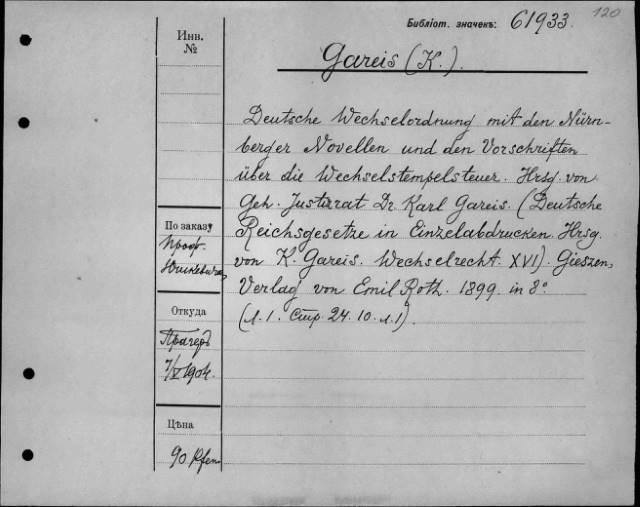 120
Библіот. значекъ: 61933.
Инв.
№
Gareis (K.).
Deutsche Wechselordnung mit den Nürn-
berger Novellen und den Vorschriften
über die Wechselstempelsteuer. Hrsg. von
Geh. Justizrat Dr. Karl Gareis. (Deutsche
Reichsgesetze in Einzelabdrucken. Hrsg.
von K. Gareis. Wechselrecht. XVI). Gieszen,
Verlag von Emil Roth. 1899. in 8°
(л. 1. Стр. 24. 10. л. 1).
По заказу
Проф.
Юшкевича
Откуда
Прагеръ
7/V 1904.
Цѣна
90 Pfen